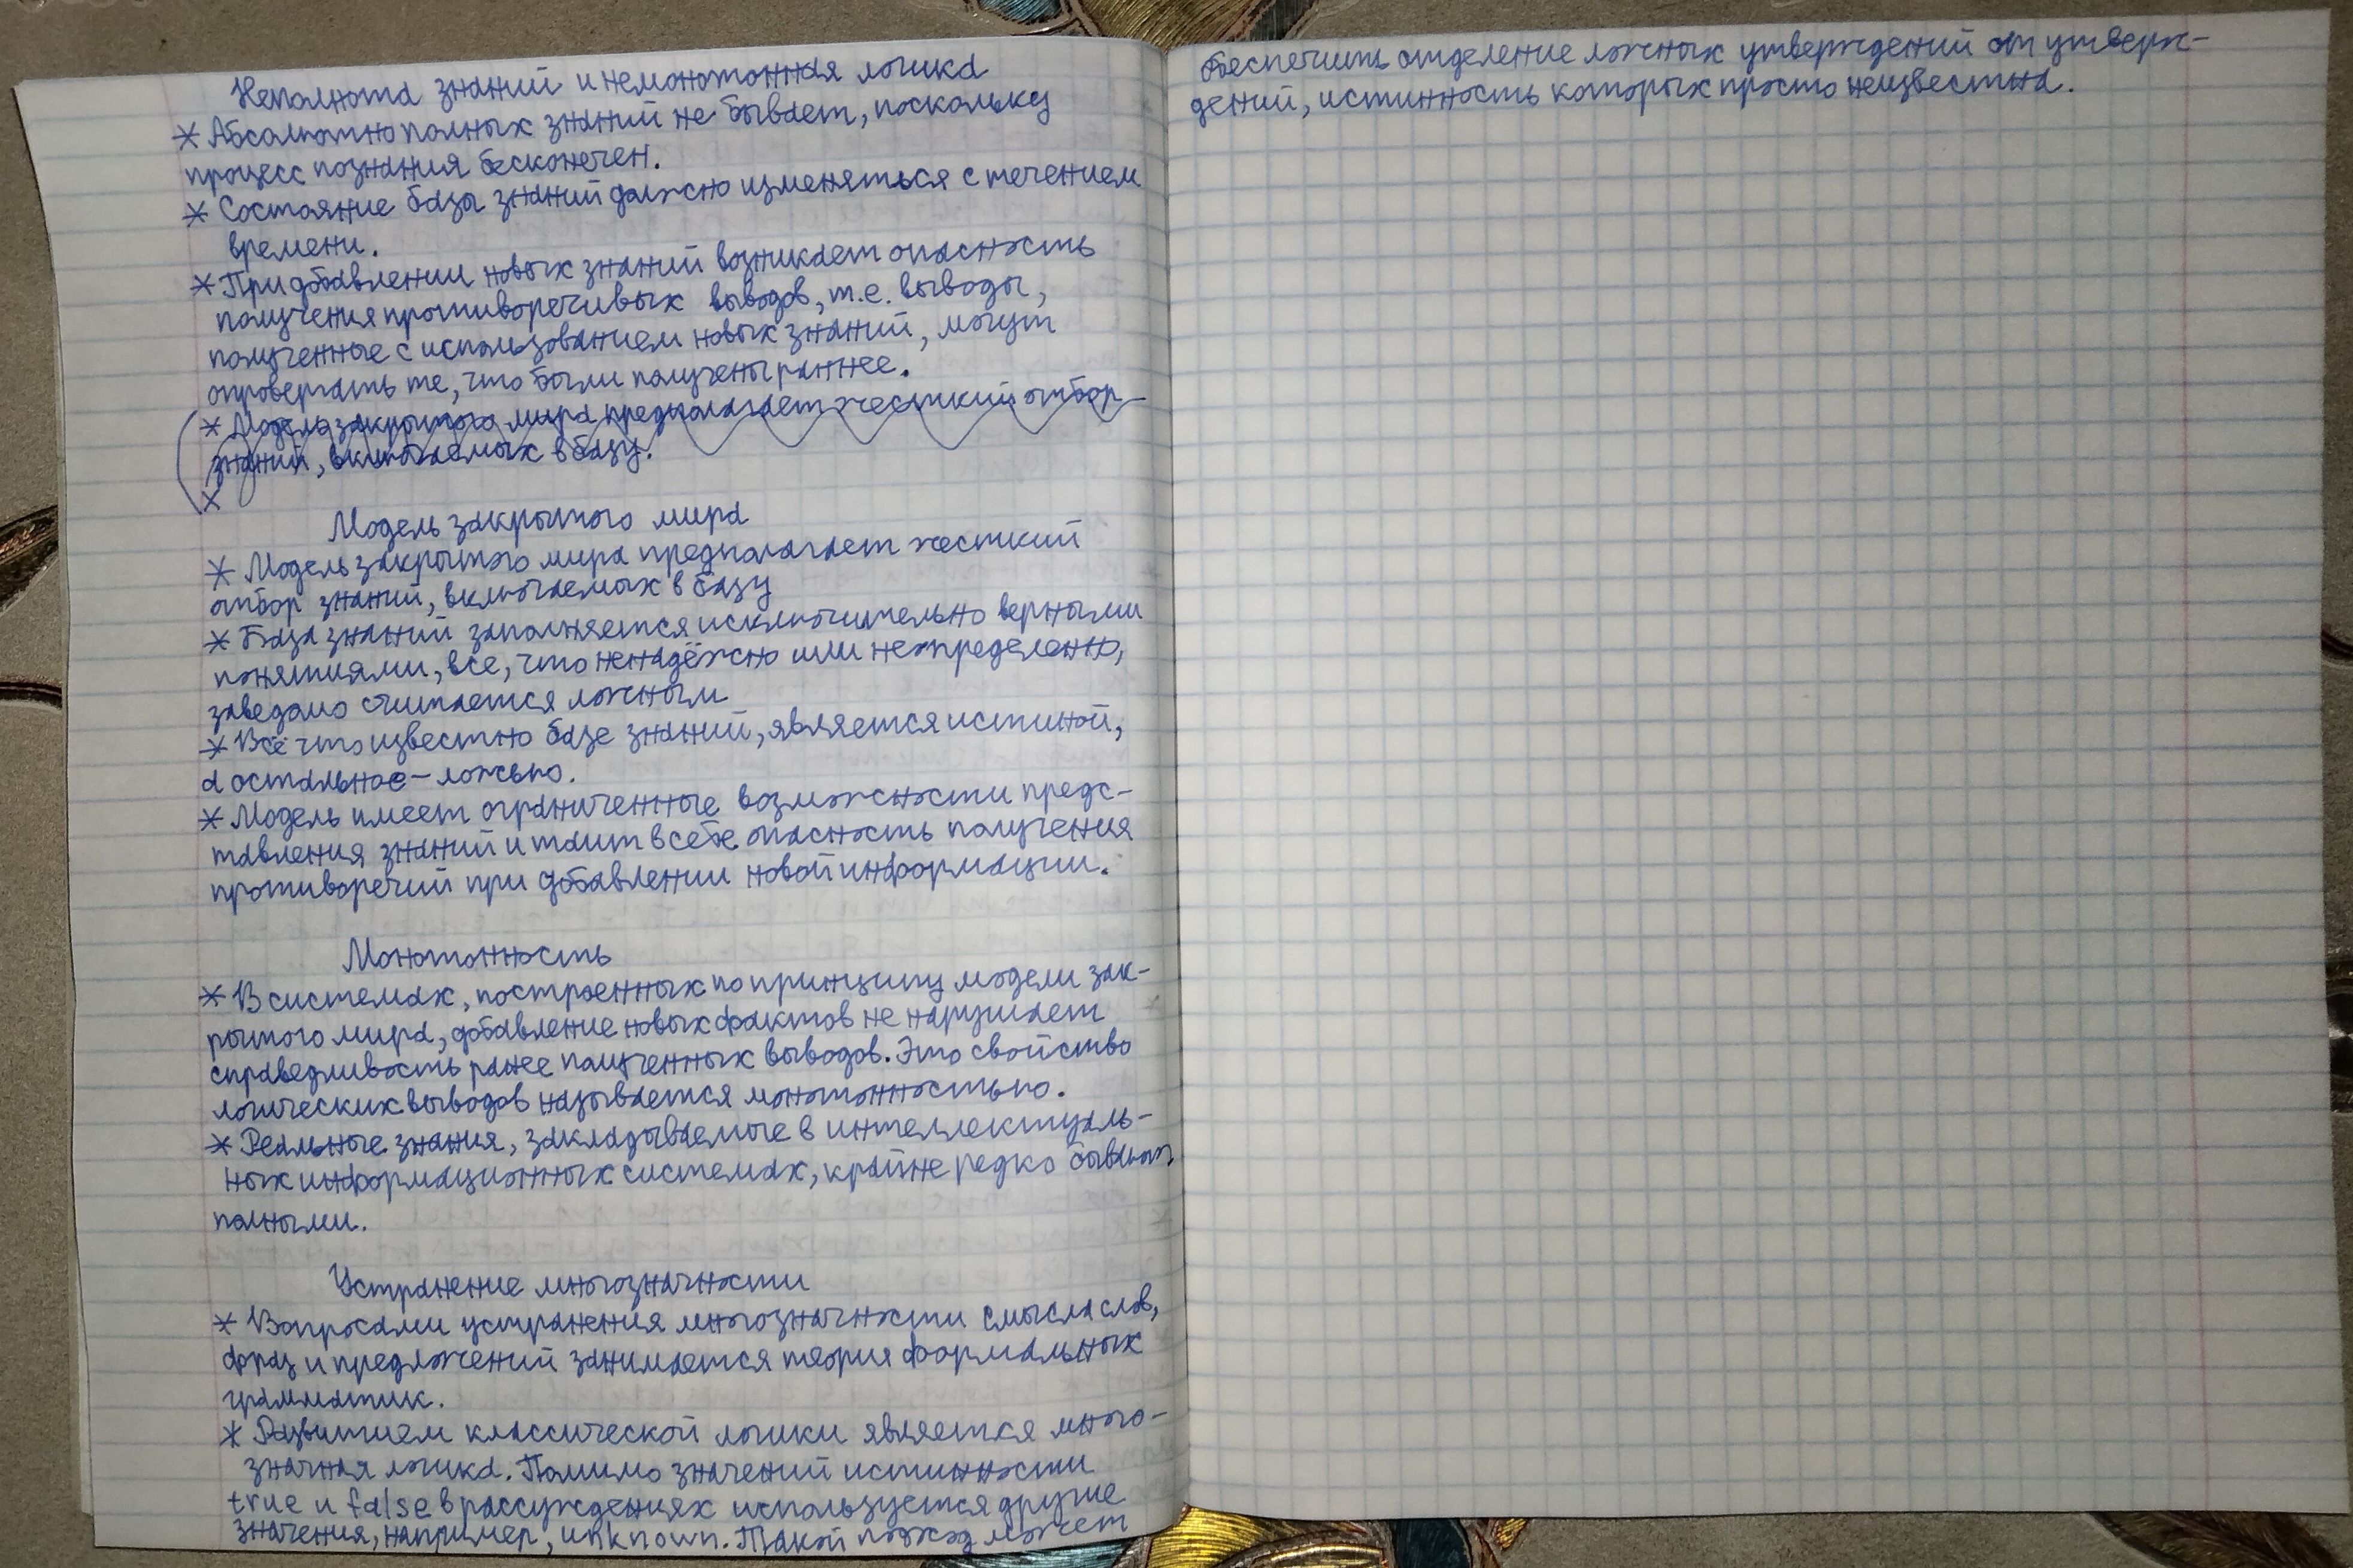 Неполнота знаний и немонотонная логика
* Абсолютно полных знаний не бывает, поскольку
процесс познания бесконечен.
* Состояние базы знаний должно изменяться с течением
времени.
* При добавлении новых знаний возникает опасность
получения противоречивых выводов, т.е. выводы,
полученные с использованием новых знаний, могут
опровергать те, что были получены раннее.
* Модель закрытого мира предполагает жесткий отбор
знаний, включаемых в базу.
*
Модель закрытого мира
* Модель закрытого мира предполагает жесткий
отбор знаний, включаемых в базу
* База знаний заполняется исключительно верными
понятиями, все, что ненадёжно или неопределенно,
заведомо считается ложным
* Всё что известно базе знаний, является истиной,
а остальное – ложью.
* Модель имеет ограниченные возможности предс-
тавления знаний и таит в себе опасность получения
противоречий при добавлении новой информации.
Монотонность
* В системах, построенных по принципу модели зак-
рытого мира, добавление новых фактов не нарушает
справедливость ранее полученных выводов. Это свойство
логических выводов называется монотонностью.
* Реальные знания, закладываемые в интеллектуаль-
ных информационных системах, крайне редко бывают
полными.
Устранение многозначности
* Вопросами устранения многозначности смысла слов,
фраз и предложений занимается теория формальных
грамматик.
* Развитием классической логики является много-
значная логика. Помимо значений истинности
true и false в рассуждениях используется другие
значения, например, unknown. Такой подход может
обеспечить отделение ложных утверждений от утверж-
дений, истинность которых просто неизвестна.